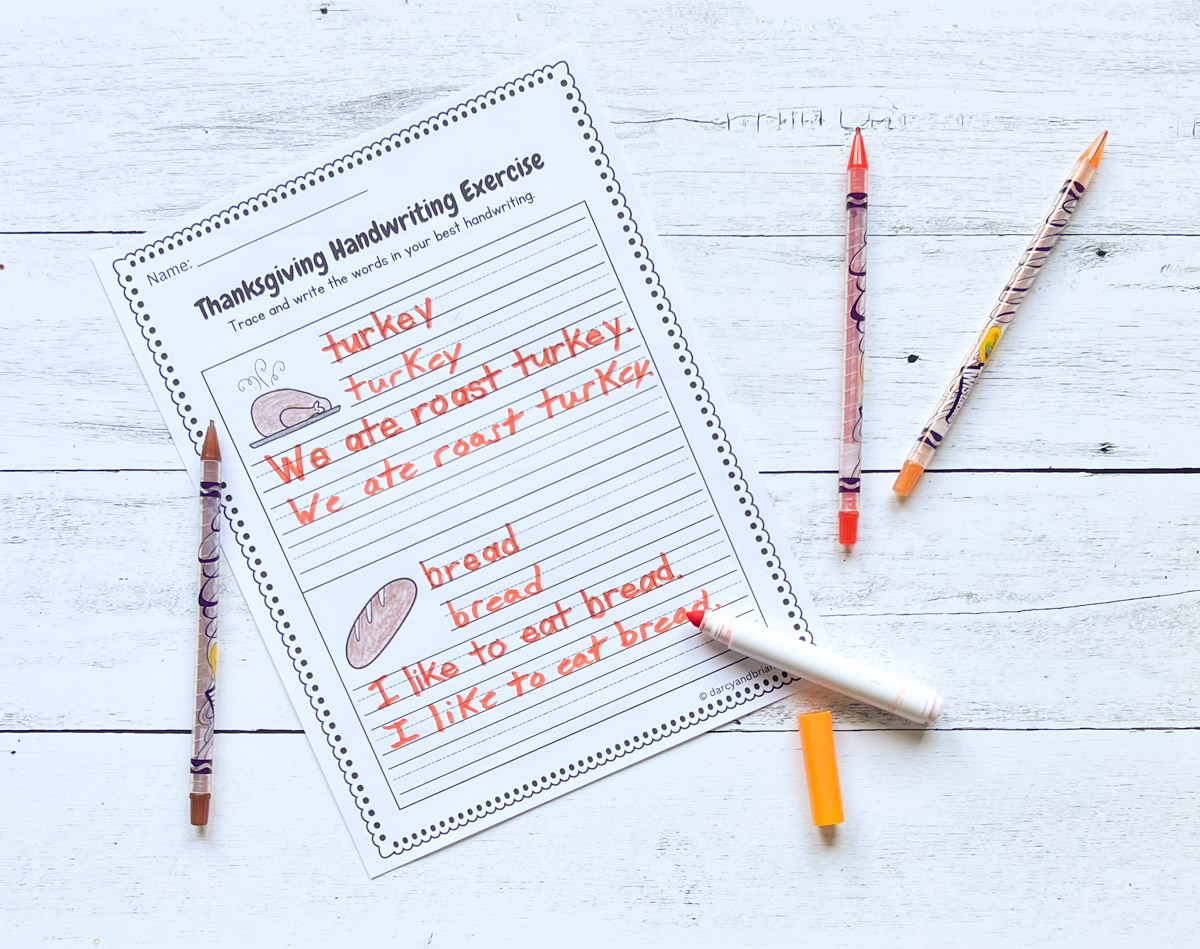 Name:
Thanksgiving Handwriting Exercise
Trace and write the words in your best handwriting.
turkey
turkey
We ate roast turkey.
We ate roast turkey.
bread
bread
I like to eat bread.
I like to eat bread.
©